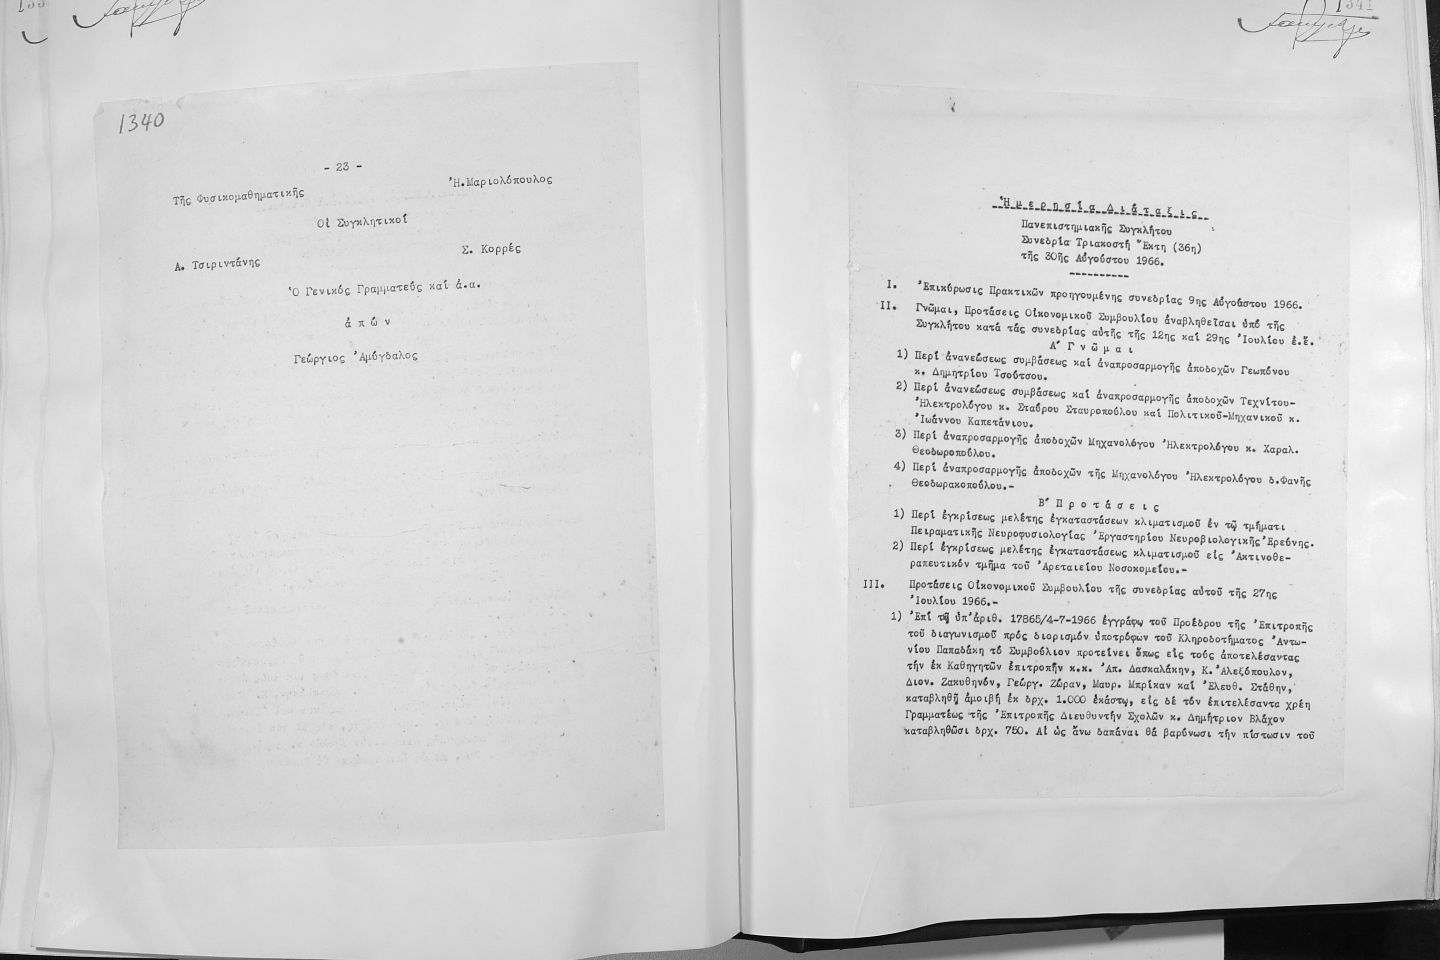 1340
- 23 -
Τῆς Φυσικομαθηματικῆς
Ἡ. Μαριολόπουλος
Οἱ Συγκλητικοί
Α. Τσιριντάνης
Σ. Κορρές
Ὁ Γενικός Γραμματεύς καί ἁ.α.
ἀ π ώ ν
Γεώργιος Ἀμύγδαλος
1341
Ἡμερησία Διάταξις
Πανεπιστημιακῆς Συγκλήτου
Συνεδρία Τριακοστή Ἕκτη (36η)
τῆς 30ῆς Αὐγούστου 1966.
----------
I. Ἐπικύρωσις Πρακτικῶν προηγουμένης συνεδρίας 9ης Αὐγούστου 1966.
II. Γνῶμαι, Προτάσεις Οἰκονομικοῦ Συμβουλίου ἀναβληθεῖσαι ὑπό τῆς
Συγκλήτου κατά τάς συνεδρίας αὐτῆς τῆς 12ης καί 29ης Ἰουλίου ἐ.ἔ.
Α' Γ ν ῶ μ α ι
1) Περί ἀνανεώσεως συμβάσεως καί ἀναπροσαρμογῆς ἀποδοχῶν Γεωπόνου
κ. Δημητρίου Τσούτσου.
2) Περί ἀνανεώσεως συμβάσεως καί ἀναπροσαρμογῆς ἀποδοχῶν Τεχνίτου-
Ἠλεκτρολόγου κ. Σταύρου Σταυροπούλου καί Πολιτικοῦ-Μηχανικοῦ κ.
Ἰωάννου Καπετάνιου.
3) Περί ἀναπροσαρμογῆς ἀποδοχῶν Μηχανολόγου Ἠλεκτρολόγου κ. Χαραλ.
Θεοδωροπούλου.
4) Περί ἀναπροσαρμογῆς ἀποδοχῶν τῆς Μηχανολόγου Ἠλεκτρολόγου δ.Φανῆς
Θεοδωρακοπούλου.-
Β' Π ρ ο τ ά σ ε ι ς
1) Περί ἐγκρίσεως μελέτης ἐγκαταστάσεων κλιματισμοῦ ἐν τῷ τμήματι
Πειραματικῆς Νευροφυσιολογίας Ἐργαστηρίου Νευροβιολογικῆς Ἐρεύνης.
2) Περί ἐγκρίσεως μελέτης ἐγκαταστάσεως κλιματισμοῦ εἰς Ἀκτινοθε-
ραπευτικόν τμῆμα τοῦ Ἀρεταιείου Νοσοκομείου.-
III. Προτάσεις Οἰκονομικοῦ Συμβουλίου τῆς συνεδρίας αὐτοῦ τῆς 27ης
Ἰουλίου 1966.-
1) Ἐπί τῷ ὑπ'ἀριθ. 17865/4-7-1966 ἐγγράφῳ τοῦ Προέδρου τῆς Ἐπιτροπῆς
τοῦ διαγωνισμοῦ πρός διορισμόν ὑποτρόφων τοῦ Κληροδοτήματος Ἀντω-
νίου Παπαδάκη τό Συμβούλιον προτείνει ὅπως εἰς τούς ἀποτελέσαντας
τήν ἐκ Καθηγητῶν ἐπιτροπήν κ.κ. Ἀπ. Δασκαλάκην, Κ. Ἀλεξόπουλον,
Διον. Ζακυθηνόν, Γεώργ. Ζώραν, Μαυρ. Μπρίκαν καί Ἐλευθ. Στάθην,
καταβληθῇ ἀμοιβή ἐκ δρχ. 1.000 ἑκάστῳ, εἰς δέ τόν ἐπιτελέσαντα χρέη
Γραμματέως τῆς Ἐπιτροπῆς Διευθυντήν Σχολῶν κ. Δημήτριον Βλάχον
καταβληθῶσι δρχ. 750. Αἱ ὡς ἄνω δαπάναι θά βαρύνωσι τήν πίστωσιν τοῦ